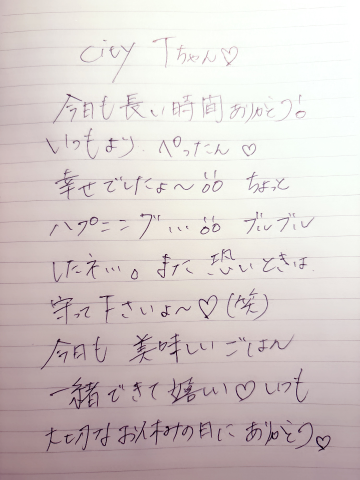 city Tちゃん♡
今日も長い時間ありがとう!
いつもより、ぺったん♡
幸せでしたよ〜!!
ちょっと
ハプニング…!! ブルブル
したネ…。また恐いときは
守って下さいよ〜♡(笑)
今日も 美味しいごはん
一緒できて嬉しい♡いつも
大切なお休みの日にありがとう♡